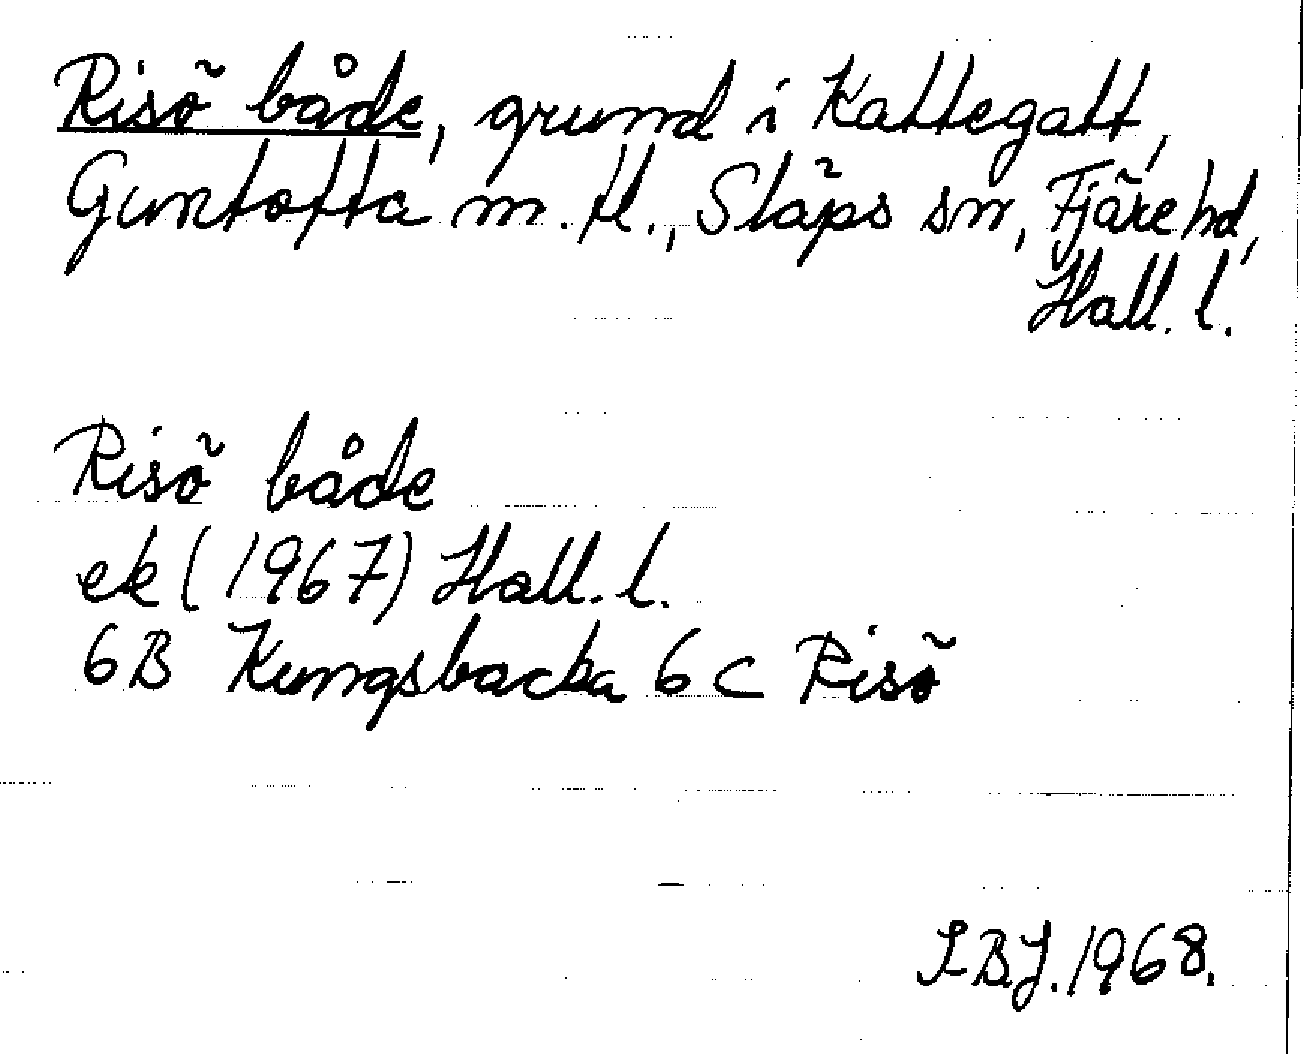 Risö både, grund i Kattegatt,
Guntofta m. fl., Släps sn, Fjäre hd,
Hall. l.
Risö både
ek (1967) Hall. l.
6B Kungsbacka 6 c Risö
I.B.J. 1968.